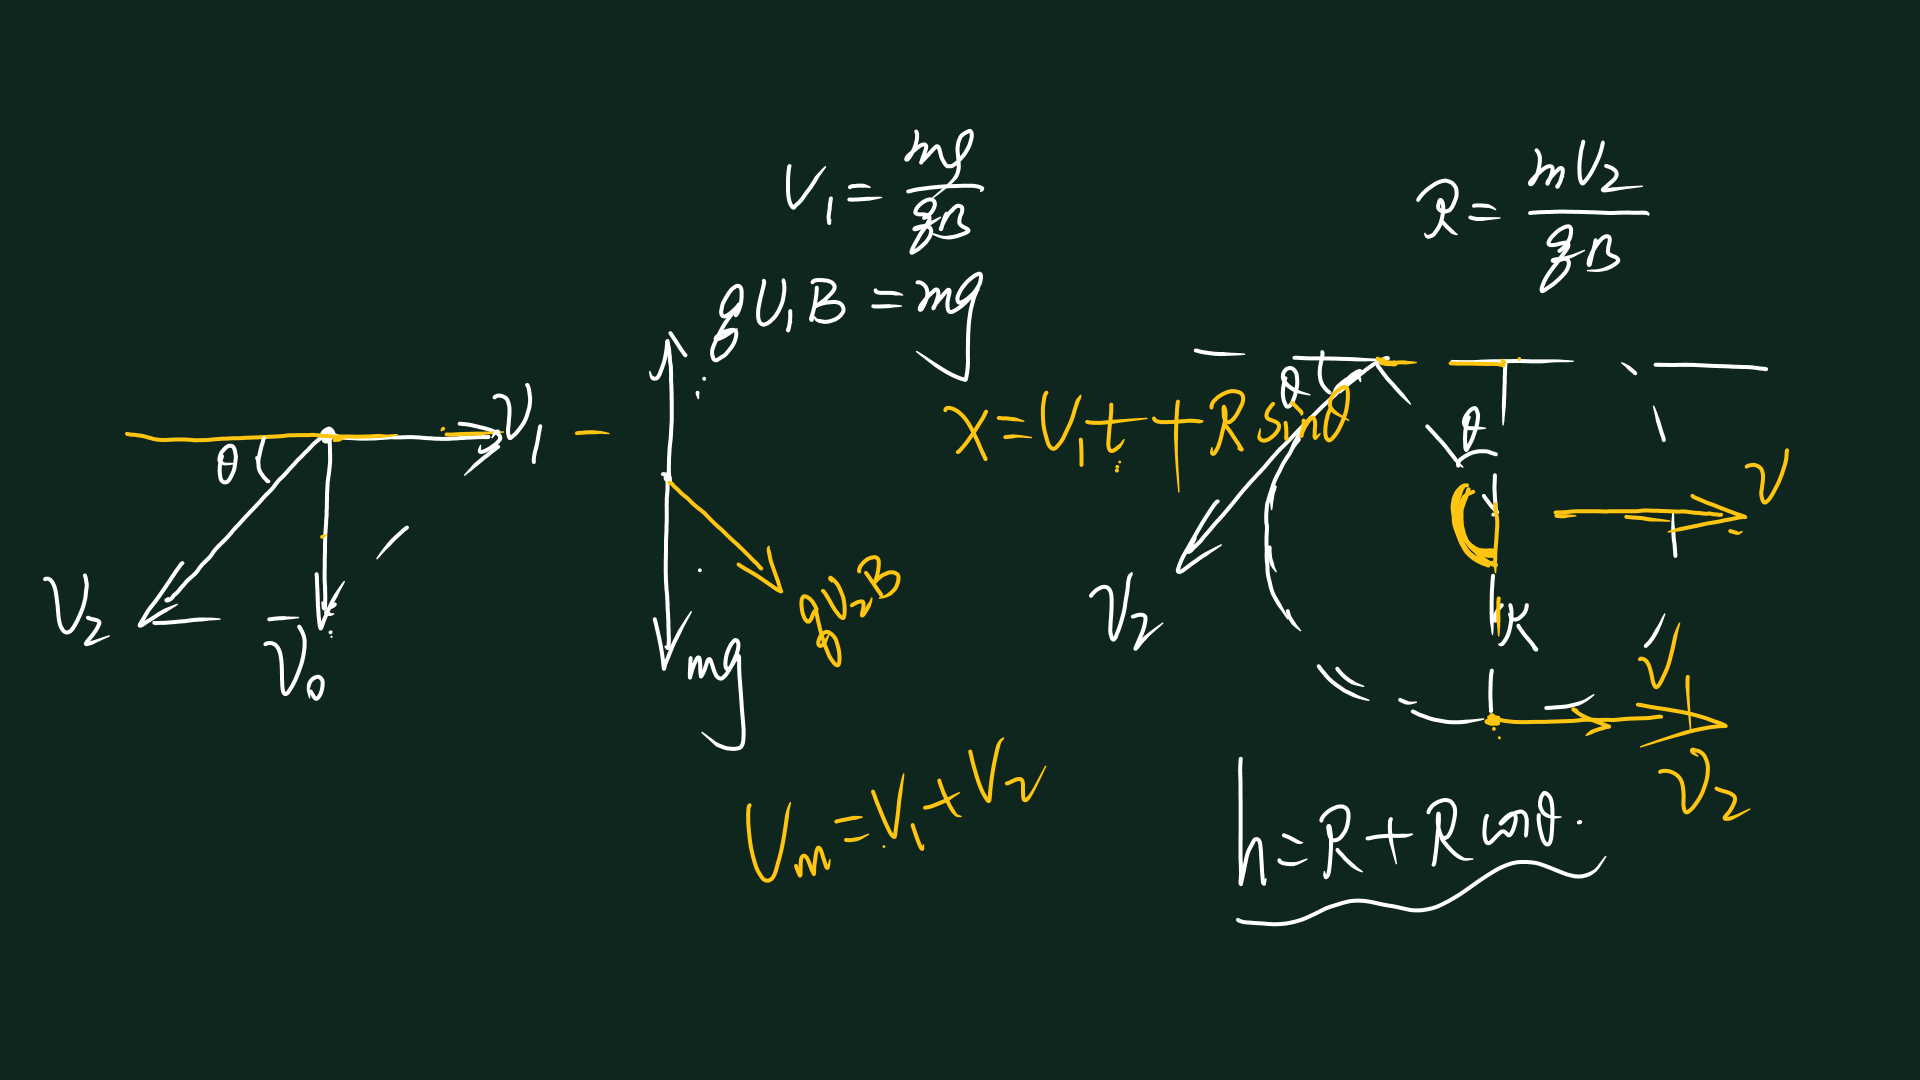 V₁ = mg/qB
qV₁B = mg
R = mV₂/qB
V₁
θ
V₂
V₀
mg
qV₂B
x = V₁t + R sinθ
θ
θ
V
V₂
R
V₁
V₂
Vm = V₁ + V₂
h = R + R cosθ.